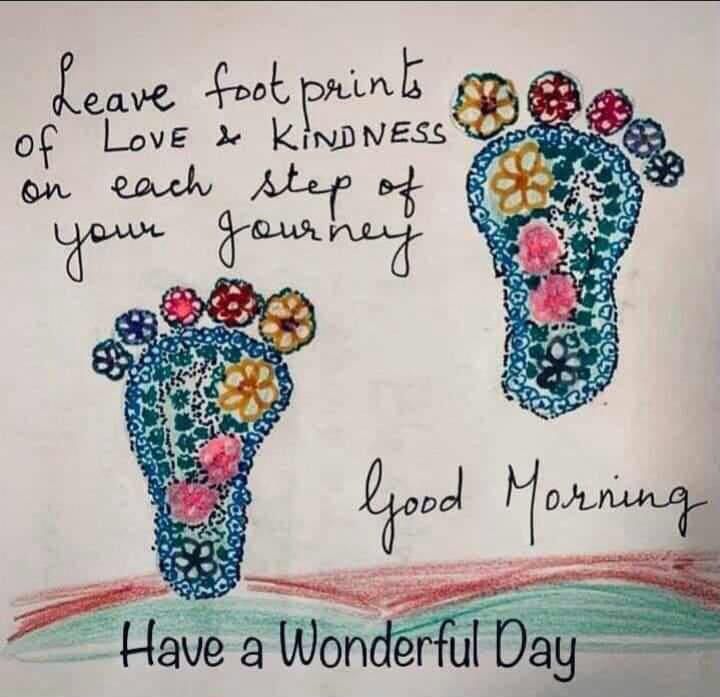 Leave footprints
of LOVE & KINDNESS
on each step of
your journey
Good Morning
Have a Wonderful Day